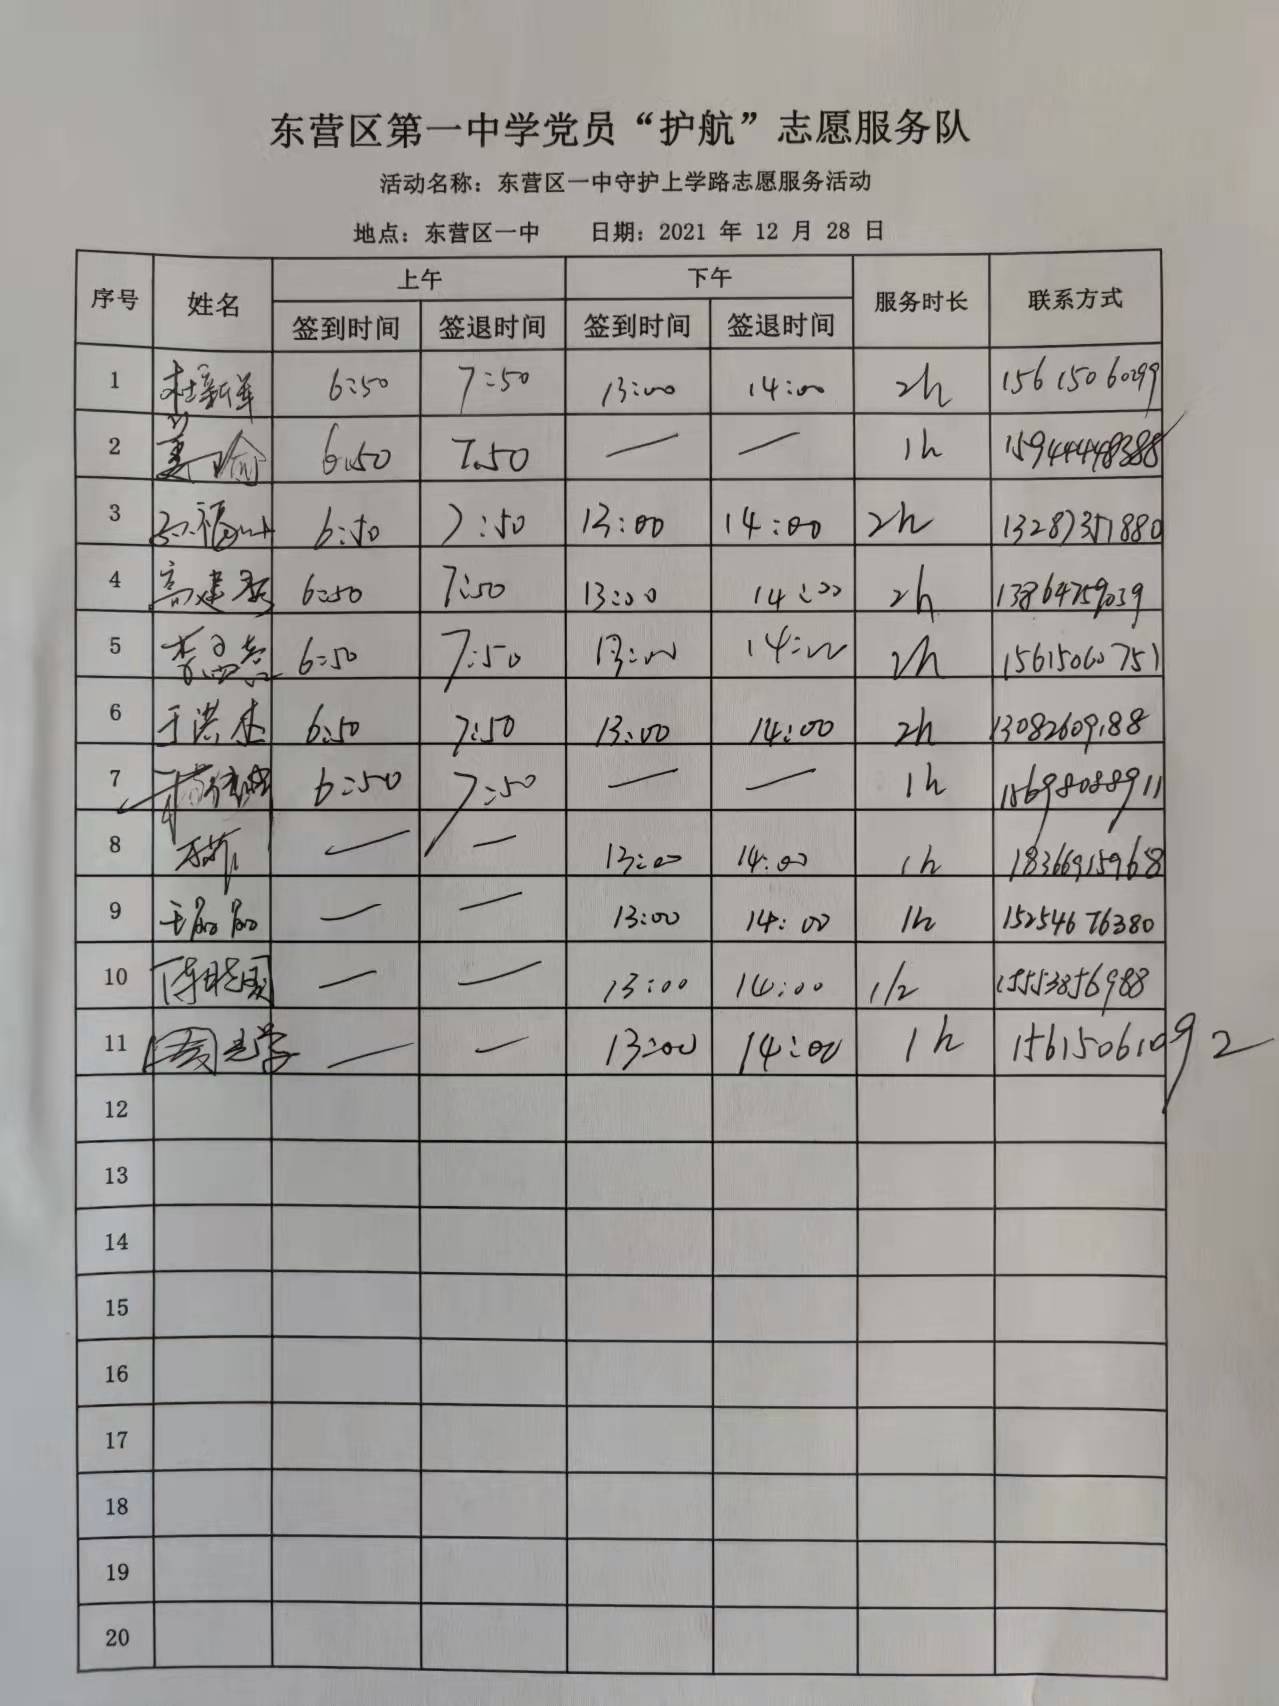 东营区第一中学党员“护航”志愿服务队
活动名称：东营区一中守护上学路志愿服务活动
地点：东营区一中 日期：2021 年 12 月 28 日
序号 姓名 上午 下午 服务时长 联系方式
签到时间 签退时间 签到时间 签退时间
1 杜新洋 6:50 7:50 13:00 14:00 2h 15615060299
2 6.50 7.50 — — 1h 15944448388
3 6:50 7:50 13:00 14:00 2h 13287351880
4 高建 6:50 7:50 13:00 14:00 2h 13864759039
5 李 6:50 7:50 13:00 14:00 2h 15615060751
6 于洪杰 6:50 7:50 13:00 14:00 2h 13082609188
7 6:50 7:50 — — 1h 15698088911
8 — — 13:00 14:00 1h 18366915968
9 王 — — 13:00 14:00 1h 15254676380
10 陈 — — 13:00 14:00 1/2 15553856988
11 周光学 — — 13:00 14:00 1h 15615061092
12
13
14
15
16
17
18
19
20